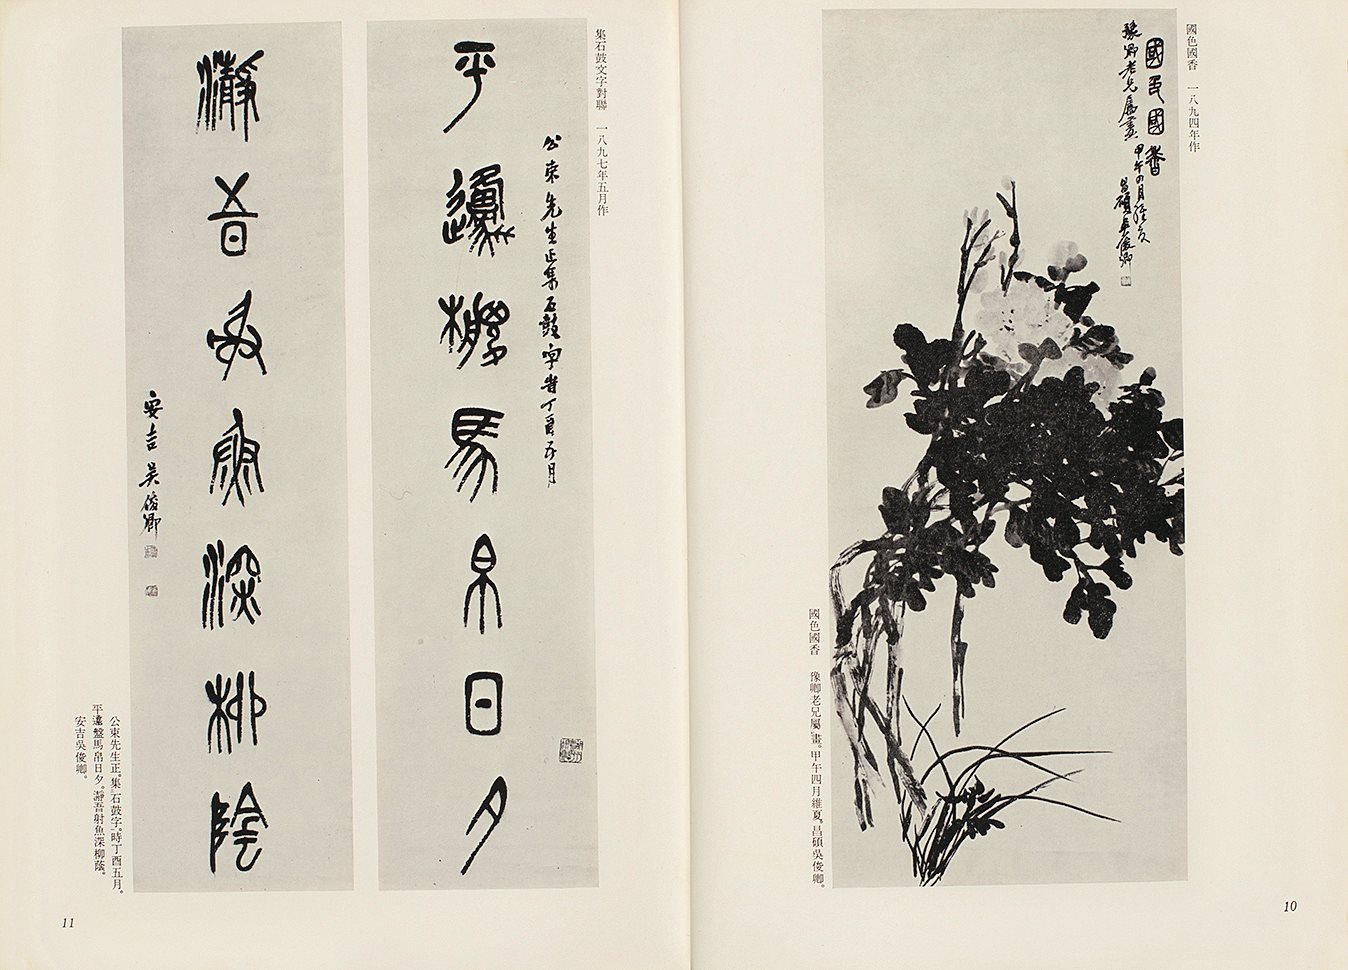 國色國香　一八九四年作
國色國香
豫卿老兄屬畫 甲午四月維夏
昌碩吳俊卿
國色國香　豫卿老兄屬畫。甲午四月維夏。昌碩吳俊卿。
10
集石鼓文字對聯　一八九七年五月作
公束先生正集石鼓字時丁酉五月
平邍盤馬帛日夕
瀞吾射魚深柳陰
安吉吳俊卿
公束先生正。集石鼓字。時丁酉五月。
平邍盤馬帛日夕。瀞吾射魚深柳蔭。
安吉吳俊卿。
11